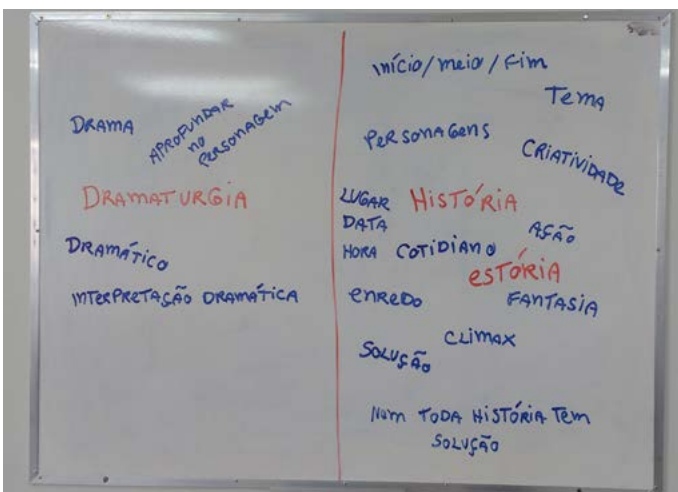 DRAMA
APROFUNDAR
NO
PERSONAGEM
DRAMATURGIA
DRAMÁTICO
INTERPRETAÇÃO DRAMÁTICA
INÍCIO/MEIO/FIM
TEMA
PERSONAGENS
CRIATIVIDADE
LUGAR HISTÓRIA
DATA
AÇÃO
HORA COTIDIANO
ESTÓRIA
ENREDO
FANTASIA
CLIMAX
SOLUÇÃO
NUM TODA HISTÓRIA TEM
SOLUÇÃO